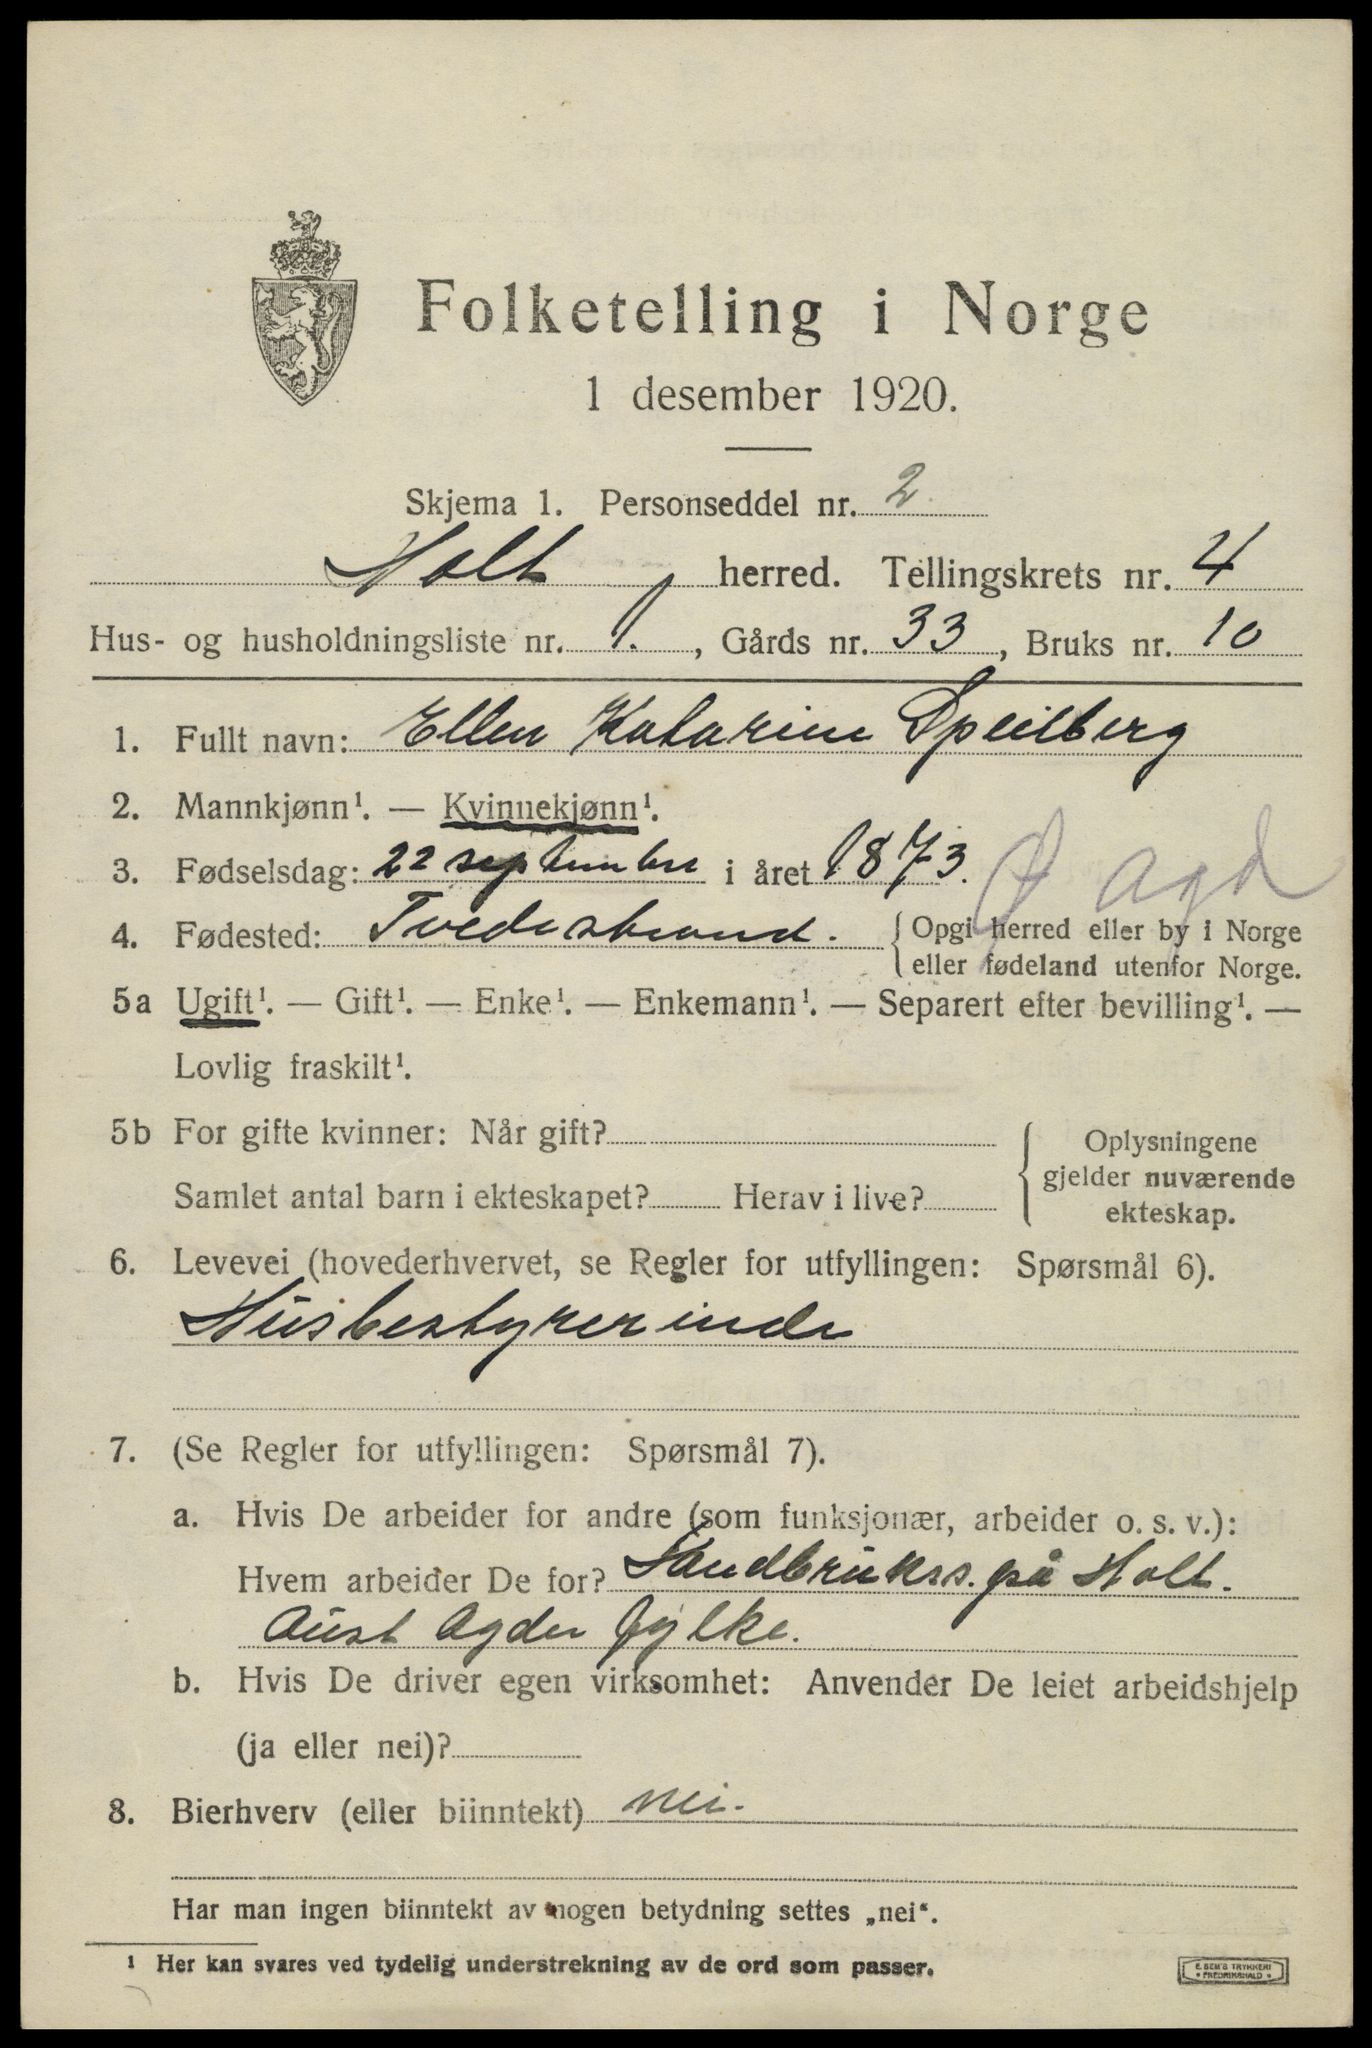 Folketelling i Norge
1 desember 1920.
Skjema 1. Personseddel nr. 2
Holt herred. Tellingskrets nr. 4
Hus- og husholdningsliste nr. 1., Gårds nr. 33, Bruks nr. 10
1. Fullt navn: Ellen Katarine Speilberg
2. Mannkjønn¹. — Kvinnekjønn¹.
3. Fødselsdag: 22 september i året 1873.
Ø Agd
4. Fødested: Tvedestrand. { Opgi herred eller by i Norge
eller fødeland utenfor Norge.
5a Ugift¹. — Gift¹. — Enke¹. — Enkemann¹. — Separert efter bevilling¹. —
Lovlig fraskilt¹.
5b For gifte kvinner: Når gift? { Oplysningene
gjelder nuværende
Samlet antal barn i ekteskapet? Herav i live? ekteskap.
6. Levevei (hovederhvervet, se Regler for utfyllingen: Spørsmål 6).
Husbestyrerinde
7. (Se Regler for utfyllingen: Spørsmål 7).
a. Hvis De arbeider for andre (som funksjonær, arbeider o. s. v.):
Hvem arbeider De for? Landbrukss. på Holt.
Aust Agder fylke.
b. Hvis De driver egen virksomhet: Anvender De leiet arbeidshjelp
(ja eller nei)?
8. Bierhverv (eller biinntekt) nei.
Har man ingen biinntekt av nogen betydning settes „nei“.
¹ Her kan svares ved tydelig understrekning av de ord som passer.
E. SEM'S TRYKKERI
* FREDRIKSHALD *